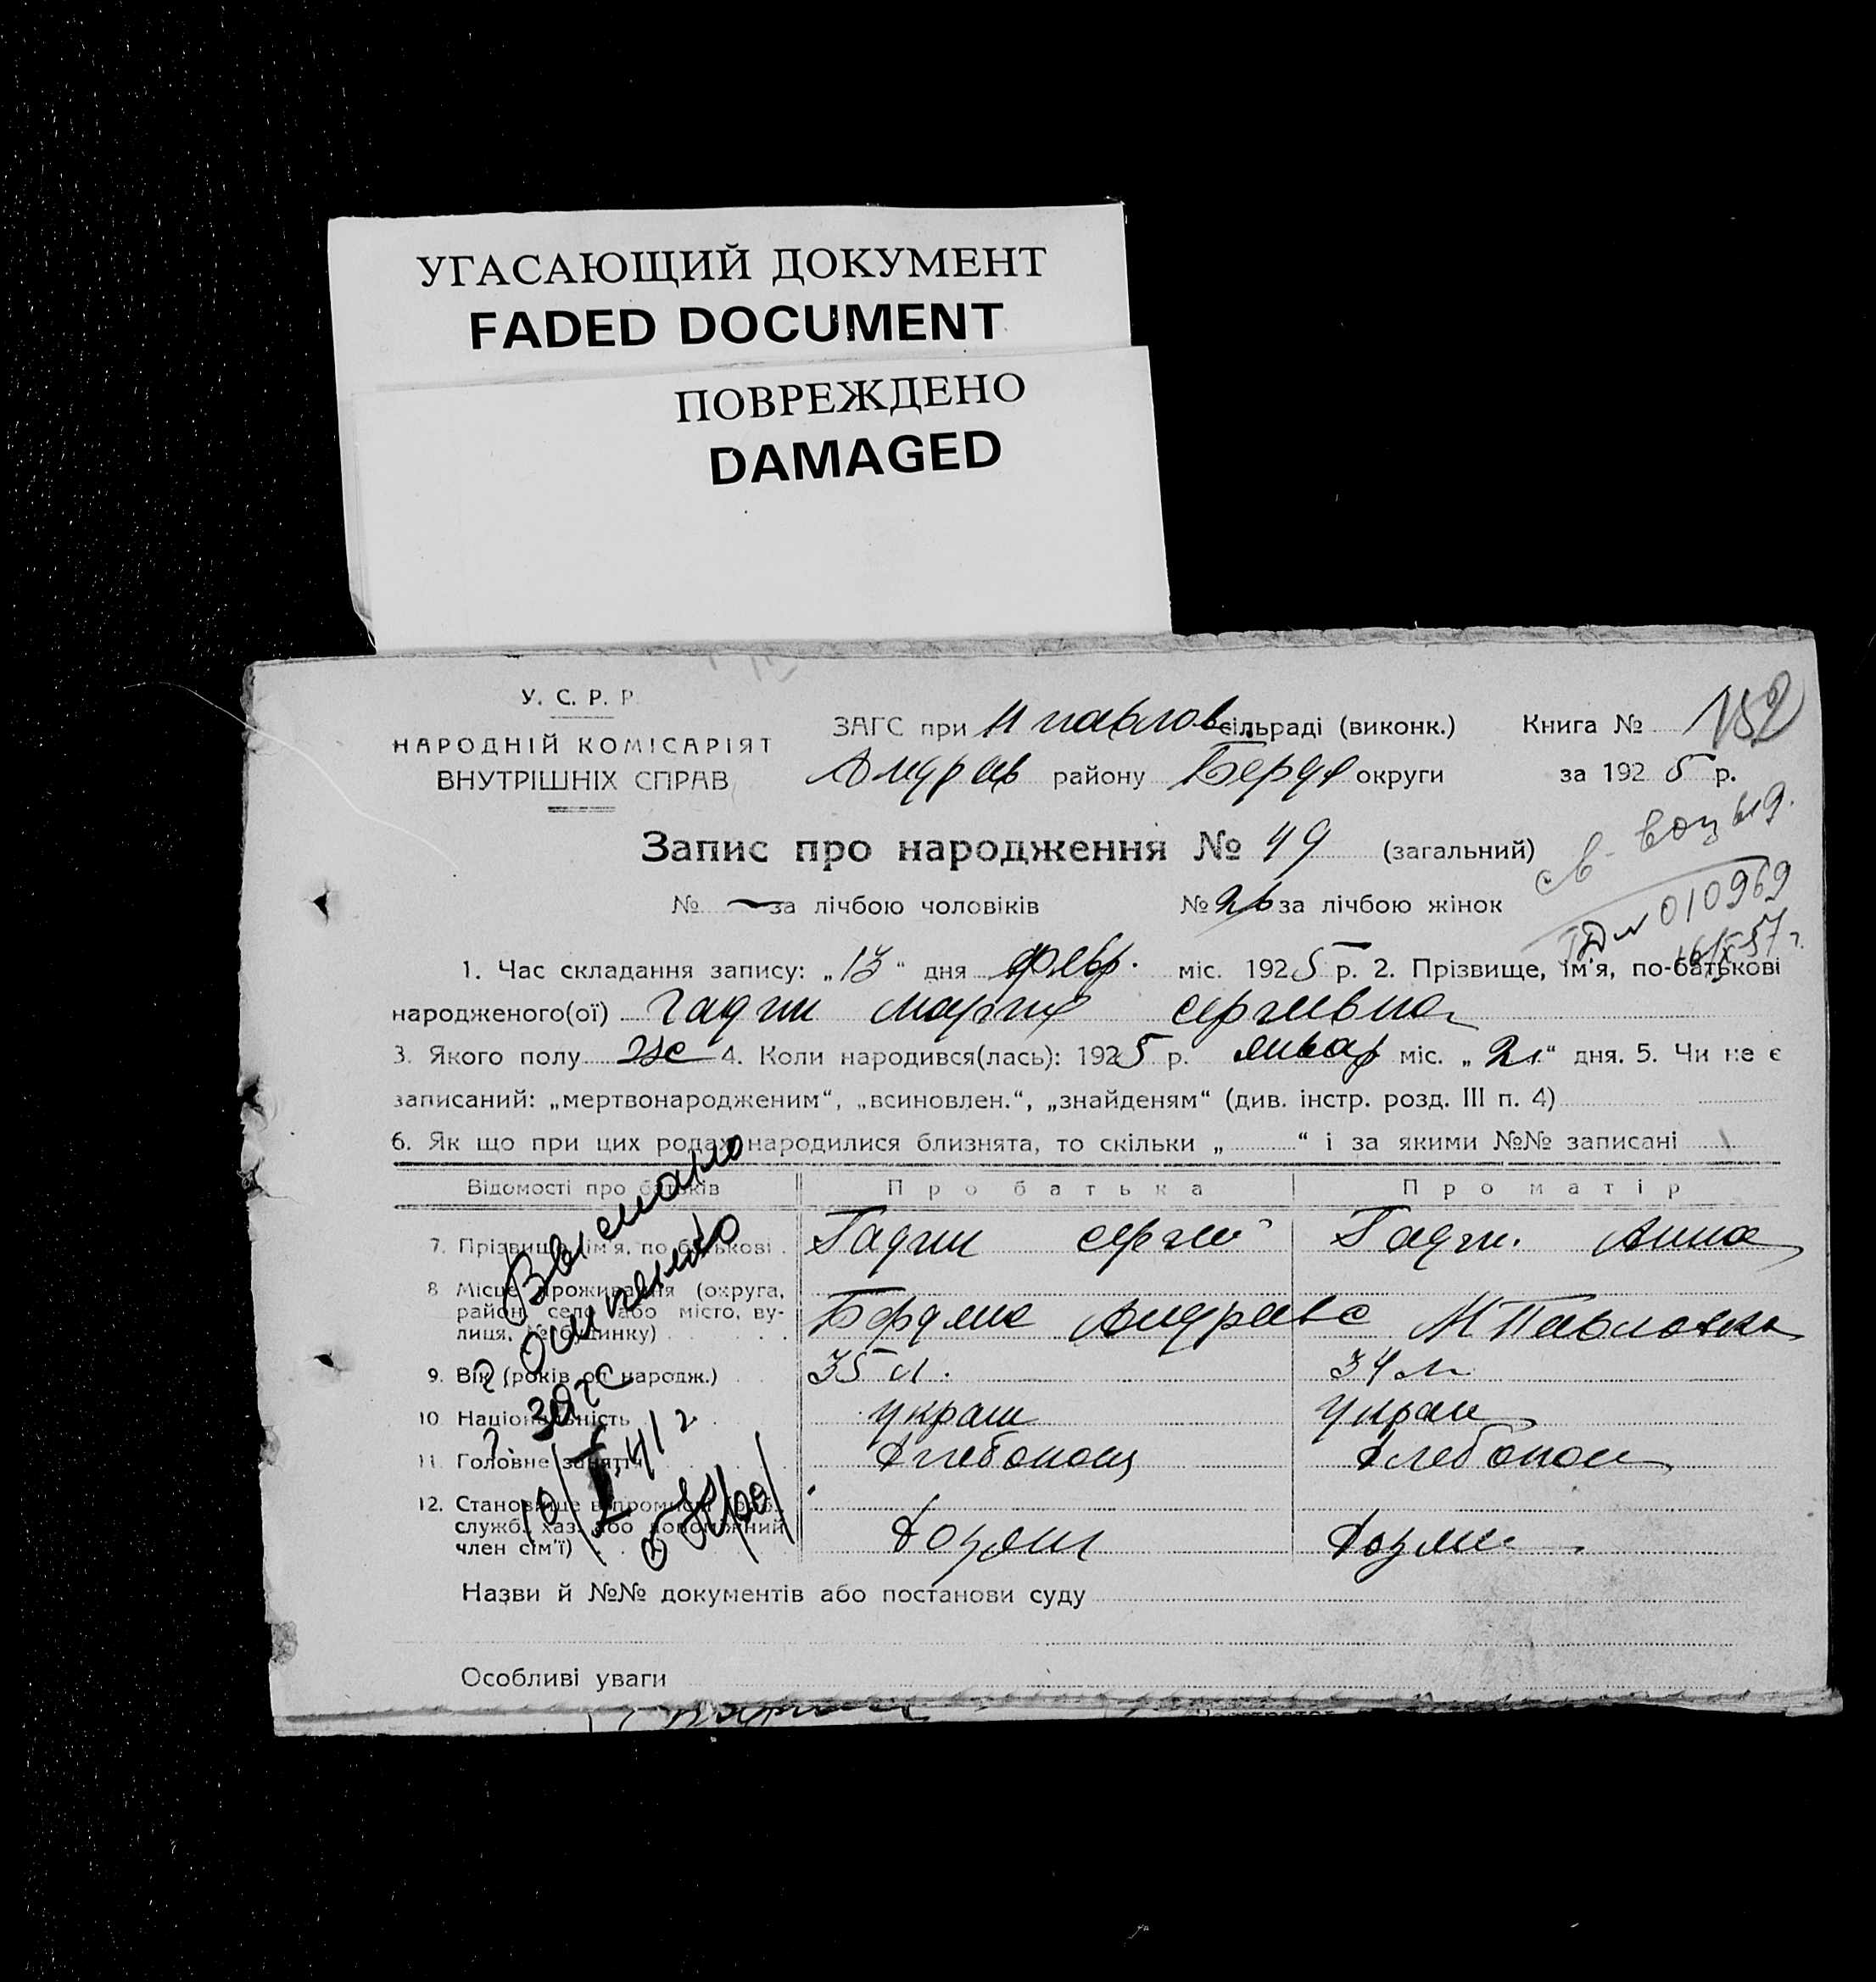 УГАСАЮЩИЙ ДОКУМЕНТ
FADED DOCUMENT
ПОВРЕЖДЕНО
DAMAGED
У. С. Р. Р.
НАРОДНІЙ КОМІСАРІЯТ
ВНУТРІШНІХ СПРАВ
ЗАГС при Н павлов сільраді (виконк.) Книга № 152
Андрив району Бердя округи за 1925 р.
Запис про народження № 49 (загальний)
№ — за лічбою чоловіків № 26 за лічбою жінок
010969
1. Час складання запису: „13“ дня февр. міс. 1925 р. 2. Прізвище, ім'я, по-батькові
народженого(ої) Гадти Мария Сергиевна
3. Якого полу же 4. Коли народився(лась): 1925 р. январ міс. „21“ дня. 5. Чи не є
записаний: „мертвонародженим“, „всиновлен.“, „знайденям“ (див. інстр. розд. III п. 4)
6. Як що при цих родах народилися близнята, то скільки „ “ і за якими №№ записані
Відомості про батьків Про батька Про матір
7. Прізвище, ім'я, по батькові Сергий Анна
8 Місце проживання (округа,
район, село або місто, ву-
лиця, № будинку) Андривс Н Павловка
9. Вік (років од народж.) 35 л. 34 л
10 Національність украин украин
11. Головне заняття Хлебопаш Хлебопаш
12. Становище в промислі
служб., хаз. або допоміжний
член сім'ї) Хозяин Хозяи
Назви й №№ документів або постанови суду
Особливі уваги
Выслано
ЗАГС